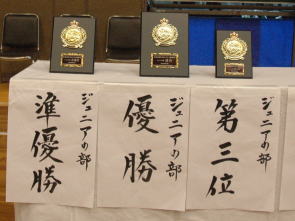 ジュニアの部
準優勝
ジュニアの部
優勝
ジュニアの部
第三位